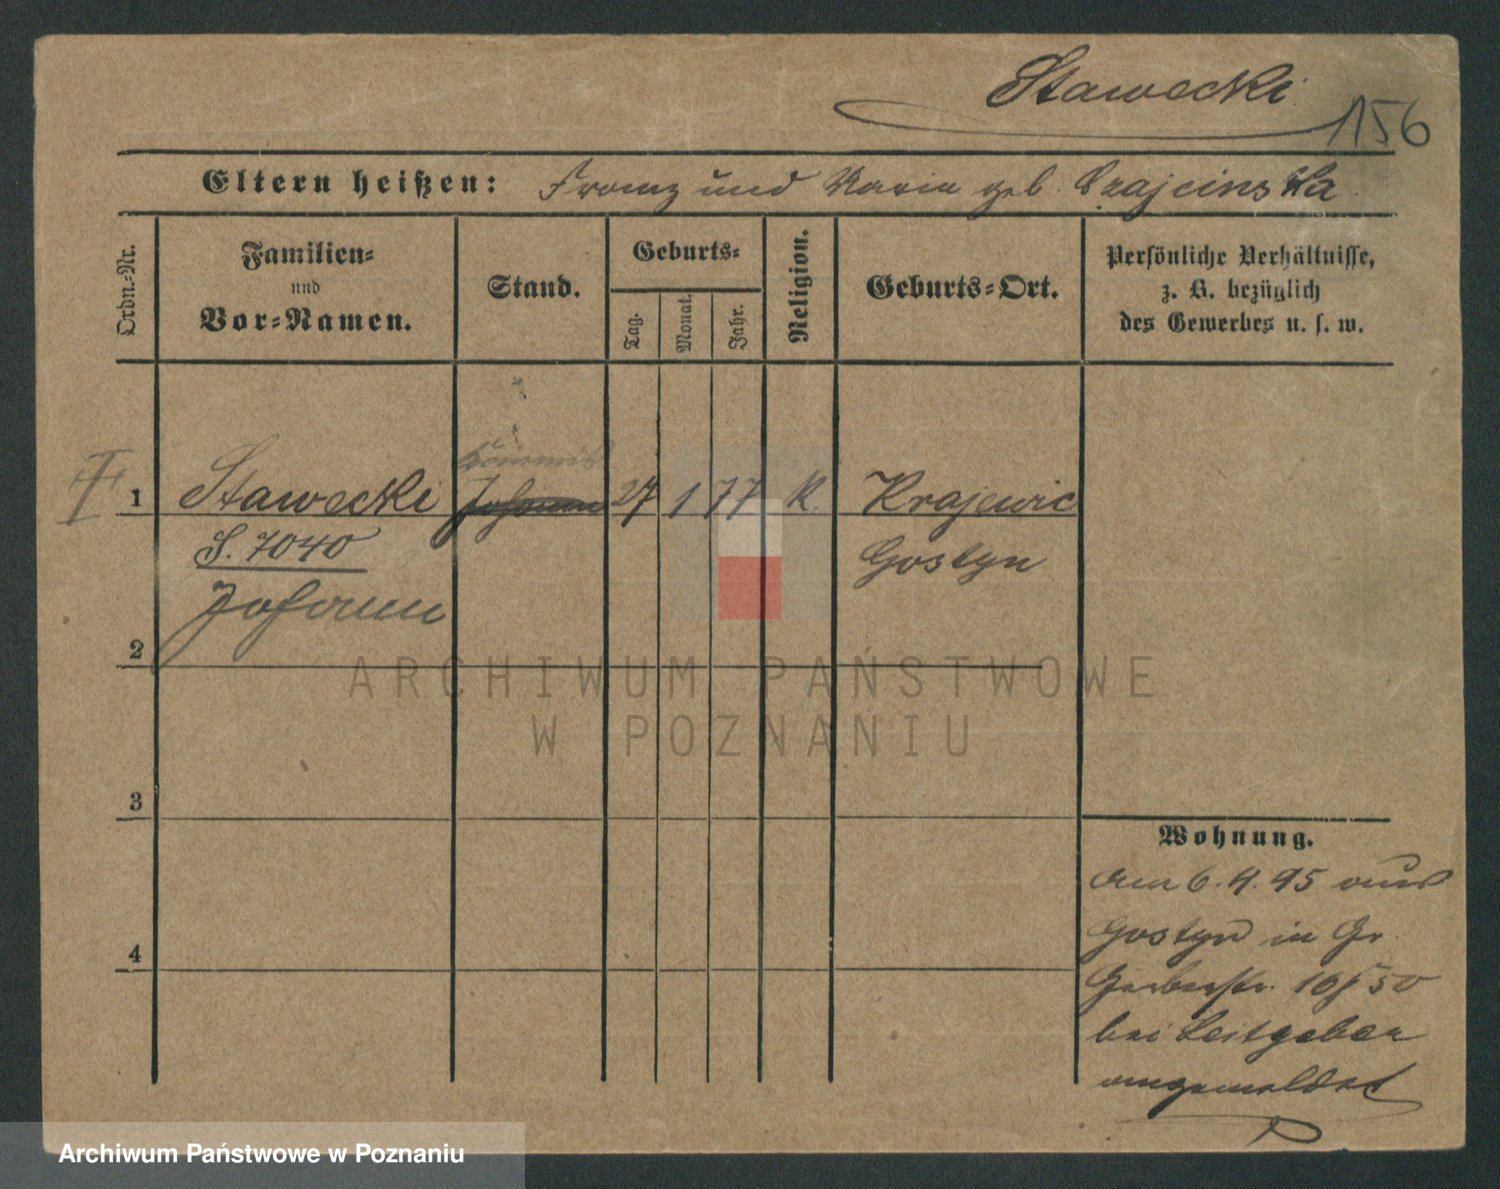 Stawecki
156
Eltern heißen: Franz und Maria geb. Czajcinska
Ordn.-Nr.
Familien-
und
Vor-Namen.
Stand.
Geburts-
Tag.
Monat.
Jahr.
Religion.
Geburts-Ort.
Persönliche Verhältnisse,
z. B. bezüglich
des Gewerbes u. s. w.
Kommis
1 Stawecki Johann 27 1 77 K. Krajewic
S. 7040 Gostyn
Johann
2
3
4
Wohnung.
am 6.4.95 aus
Gostyn in Gr
Gerberstr. 16/50
bei Leitgeber
angemeldet
ARCHIWUM PAŃSTWOWE
W POZNANIU
Archiwum Państwowe w Poznaniu